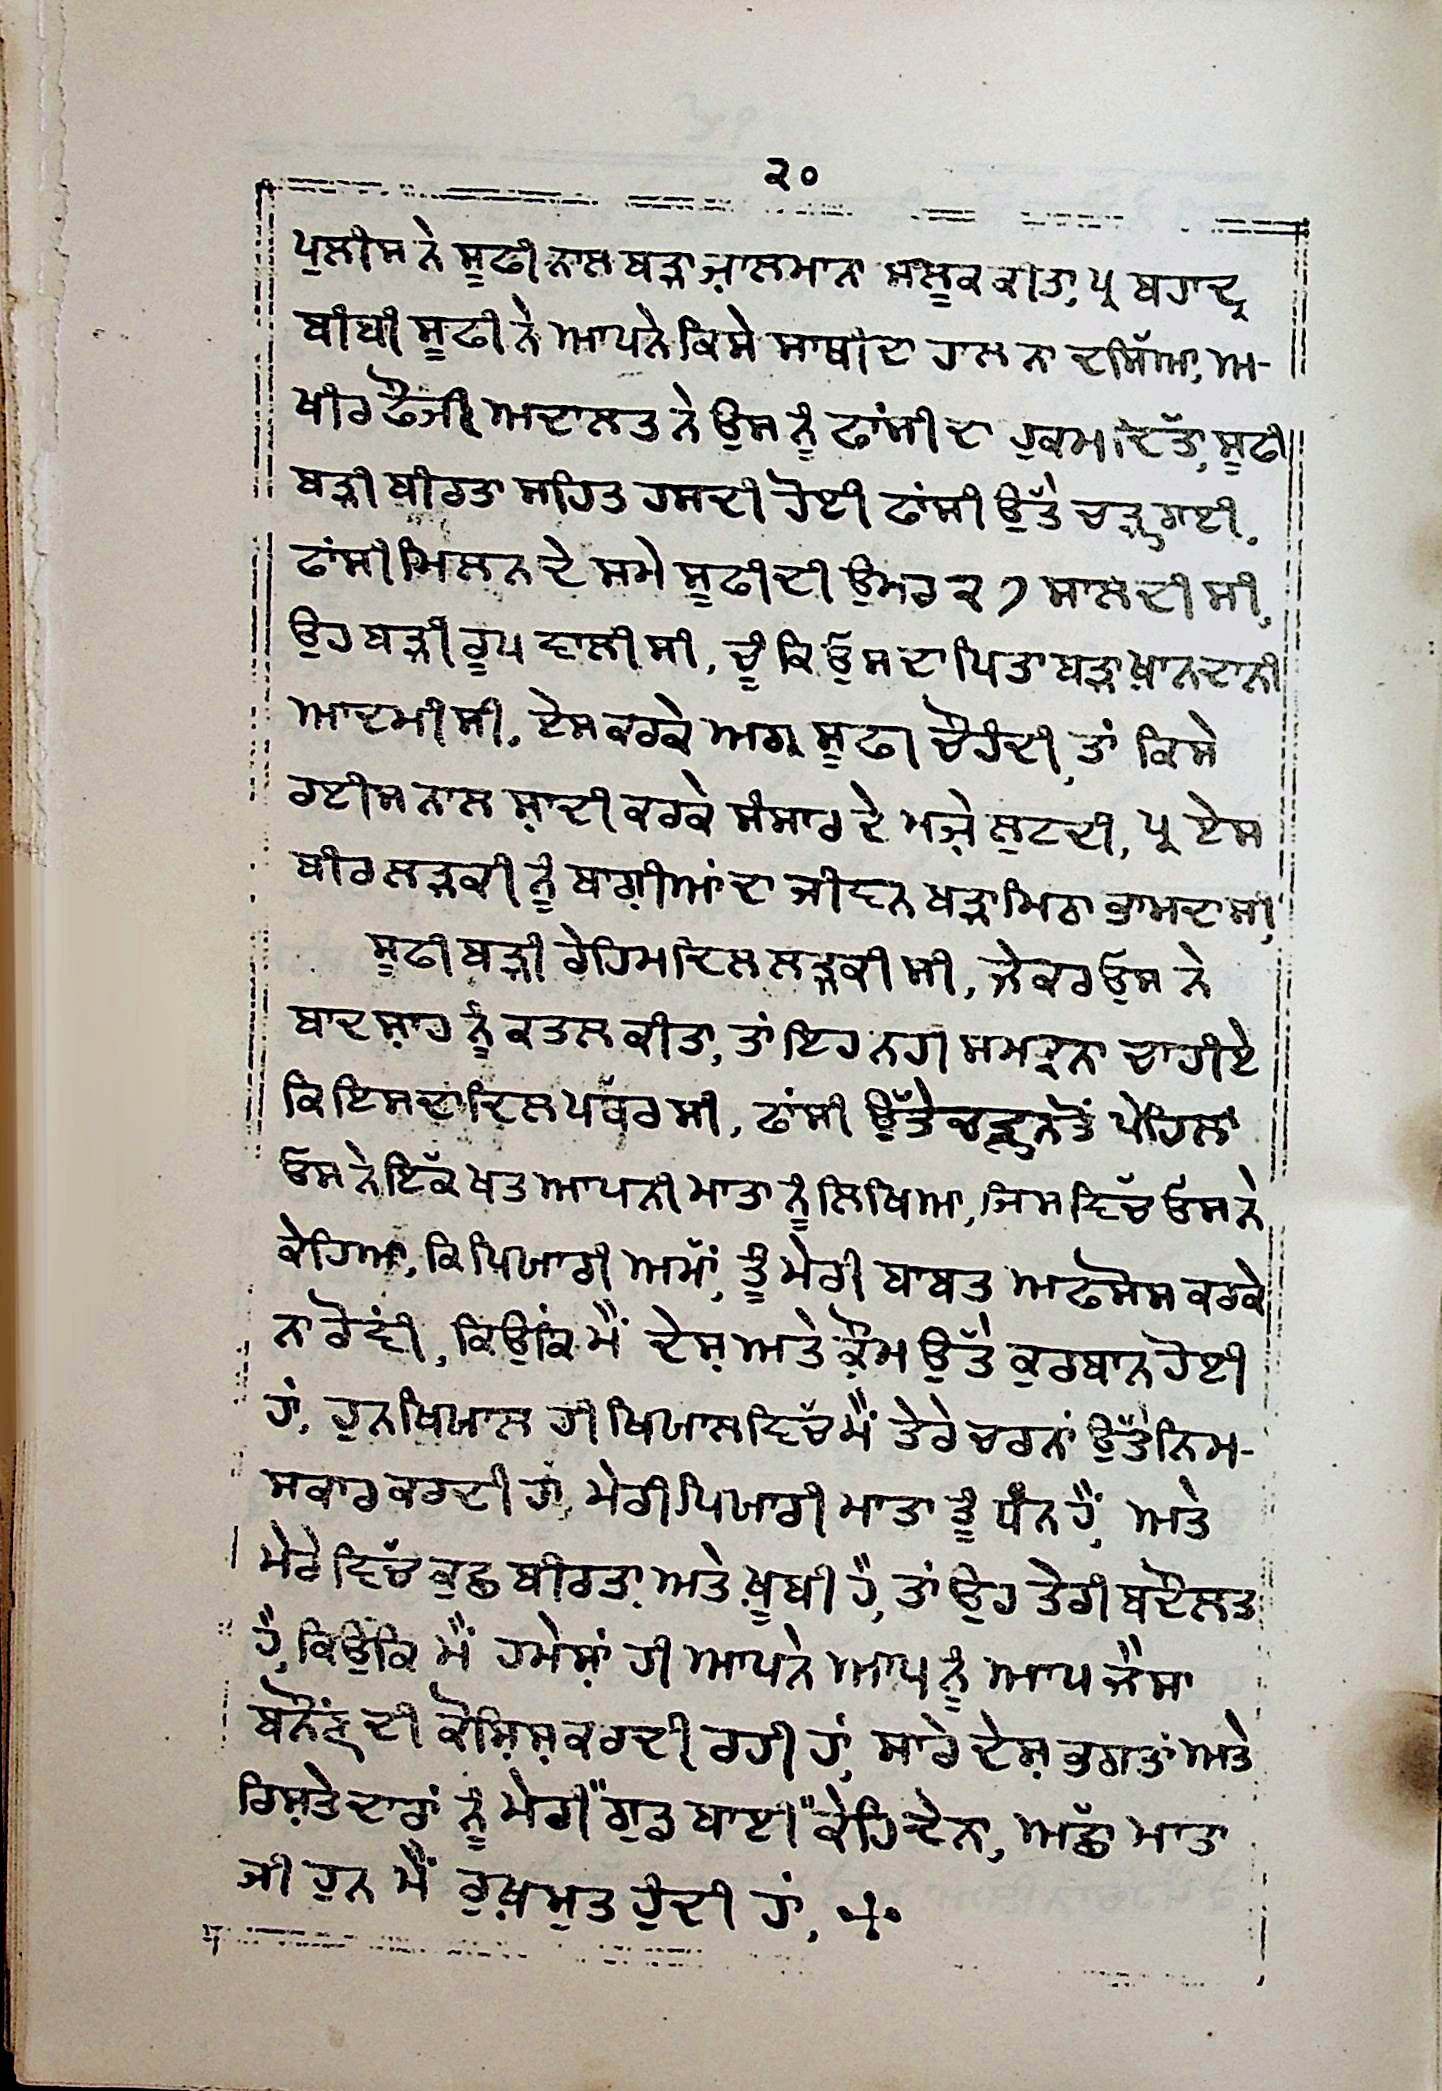 ੨੦
ਪੁਲੀਸ ਨੇ ਸੂਫੀ ਨਾਲ ਬੜਾ ਜ਼ਾਲਮਾਨਾ ਸਲੂਕ ਕੀਤਾ, ਪ੍ਰ ਬਹਾਦ੍ਰ
ਬੀਬੀ ਸੂਫੀ ਨੇ ਆਪਨੇ ਕਿਸੇ ਸਾਥੀ ਦਾ ਹਾਲ ਨਾ ਦਸਿੱਆ, ਅ-
ਖੀਰ ਫੌਜੀ ਅਦਾਲਤ ਨੇ ਉਸ ਨੂੰ ਫਾਂਸੀ ਦਾ ਹੁਕਮ ਦਿੱਤਾ, ਸੂਫੀ
ਬੜੀ ਬੀਰਤਾ ਸਹਿਤ ਹਸਦੀ ਹੋਈ ਫਾਂਸੀ ਉੱਤੇ ਚੜ੍ਹ ਗਈ.
ਫਾਂਸੀ ਮਿਲਨ ਦੇ ਸਮੇ ਸੂਫੀ ਦੀ ਉਮਰ ੨੭ ਸਾਲ ਦੀ ਸੀ,
ਉਹ ਬੜੀ ਰੂਪ ਵਾਲੀ ਸੀ, ਚੂੰਕਿ ਉਸ ਦਾ ਪਿਤਾ ਬੜਾ ਖ਼ਾਨਦਾਨੀ
ਆਦਮੀ ਸੀ, ਏਸ ਕਰਕੇ ਅਗ੍ਰ ਸੂਫੀ ਚੌਹੰਦੀ, ਤਾਂ ਕਿਸੇ
ਰਈਸ ਨਾਲ ਸ਼ਾਦੀ ਕਰਕੇ ਸੰਸਾਰ ਦੇ ਮਜ਼ੇ ਲੁਟਦੀ, ਪ੍ਰ ਏਸ
ਬੀਰ ਲੜਕੀ ਨੂੰ ਬਾਗ਼ੀਆਂ ਦਾ ਜੀਵਨ ਬੜਾ ਮਿਠਾ ਭਾਸਦਾ ਸੀ,
ਸੂਫੀ ਬੜੀ ਰੇਹਿਮਦਿਲ ਲੜਕੀ ਸੀ, ਜੇਕਰ ਓਸ ਨੇ
ਬਾਦਸ਼ਾਹ ਨੂੰ ਕਤਲ ਕੀਤਾ, ਤਾਂ ਇਹ ਨਹੀ ਸਮਝਨਾ ਚਾਹੀਏ
ਕਿ ਇਸ ਦਾ ਦਿਲ ਪਥੱਰ ਸੀ, ਫਾਂਸੀ ਉੱਤੇ ਚੜ੍ਹਨ ਤੋਂ ਪੇਹਿਲਾਂ
ਓਸ ਨੇ ਇੱਕ ਖਤ ਆਪਨੀ ਮਾਤਾ ਨੂੰ ਲਿਖਿਆ, ਜਿਸ ਵਿੱਚ ਓਸ ਨੇ
ਕੇਹਿਆ, ਕਿ ਪਿਯਾਰੀ ਅਮਾਂ, ਤੂੰ ਮੇਰੀ ਬਾਬਤ ਅਫਸੋਸ ਕਰਕੇ
ਨਾ ਰੋਵੀਂ, ਕਿਉਂਕਿ ਮੈਂ ਦੇਸ਼ ਅਤੇ ਕੌਮ ਉੱਤੇ ਕੁਰਬਾਨ ਹੋਈ
ਹਾਂ, ਹੁਨ ਖਿਯਾਲ ਹੀ ਖਿਯਾਲ ਵਿੱਚ ਮੈਂ ਤੇਰੇ ਚਰਨਾਂ ਉੱਤੇ ਨਿਮ-
ਸਕਾਰ ਕਰਦੀ ਹਾਂ, ਮੇਰੀ ਪਿਯਾਰੀ ਮਾਤਾ ਤੂੰ ਧੰਨ ਹੈਂ, ਅਤੇ
ਮੇਰੇ ਵਿੱਚ ਕੁਛ ਬੀਰਤਾ ਅਤੇ ਖ਼ੂਬੀ ਹੈ, ਤਾਂ ਉਹ ਤੇਰੀ ਬਦੌਲਤ
ਹੈ, ਕਿਉਂਕਿ ਮੈਂ ਹਮੇਸ਼ਾਂ ਹੀ ਆਪਨੇ ਆਪ ਨੂੰ ਆਪ ਜੈਸਾ
ਬਨੌਂਣ ਦੀ ਕੋਸ਼ਿਸ਼ ਕਰਦੀ ਰਹੀ ਹਾਂ, ਸਾਰੇ ਦੇਸ਼ ਭਗਤਾਂ ਅਤੇ
ਰਿਸ਼ਤੇਦਾਰਾਂ ਨੂੰ ਮੇਰੀ "ਗੁਡ ਬਾਈ" ਕੇਹਿ ਦੇਨਾ, ਅਛਾ ਮਾਤਾ
ਜੀ ਹੁਨ ਮੈਂ ਰੁਖ਼ਸੁਤ ਹੁੰਦੀ ਹਾਂ,